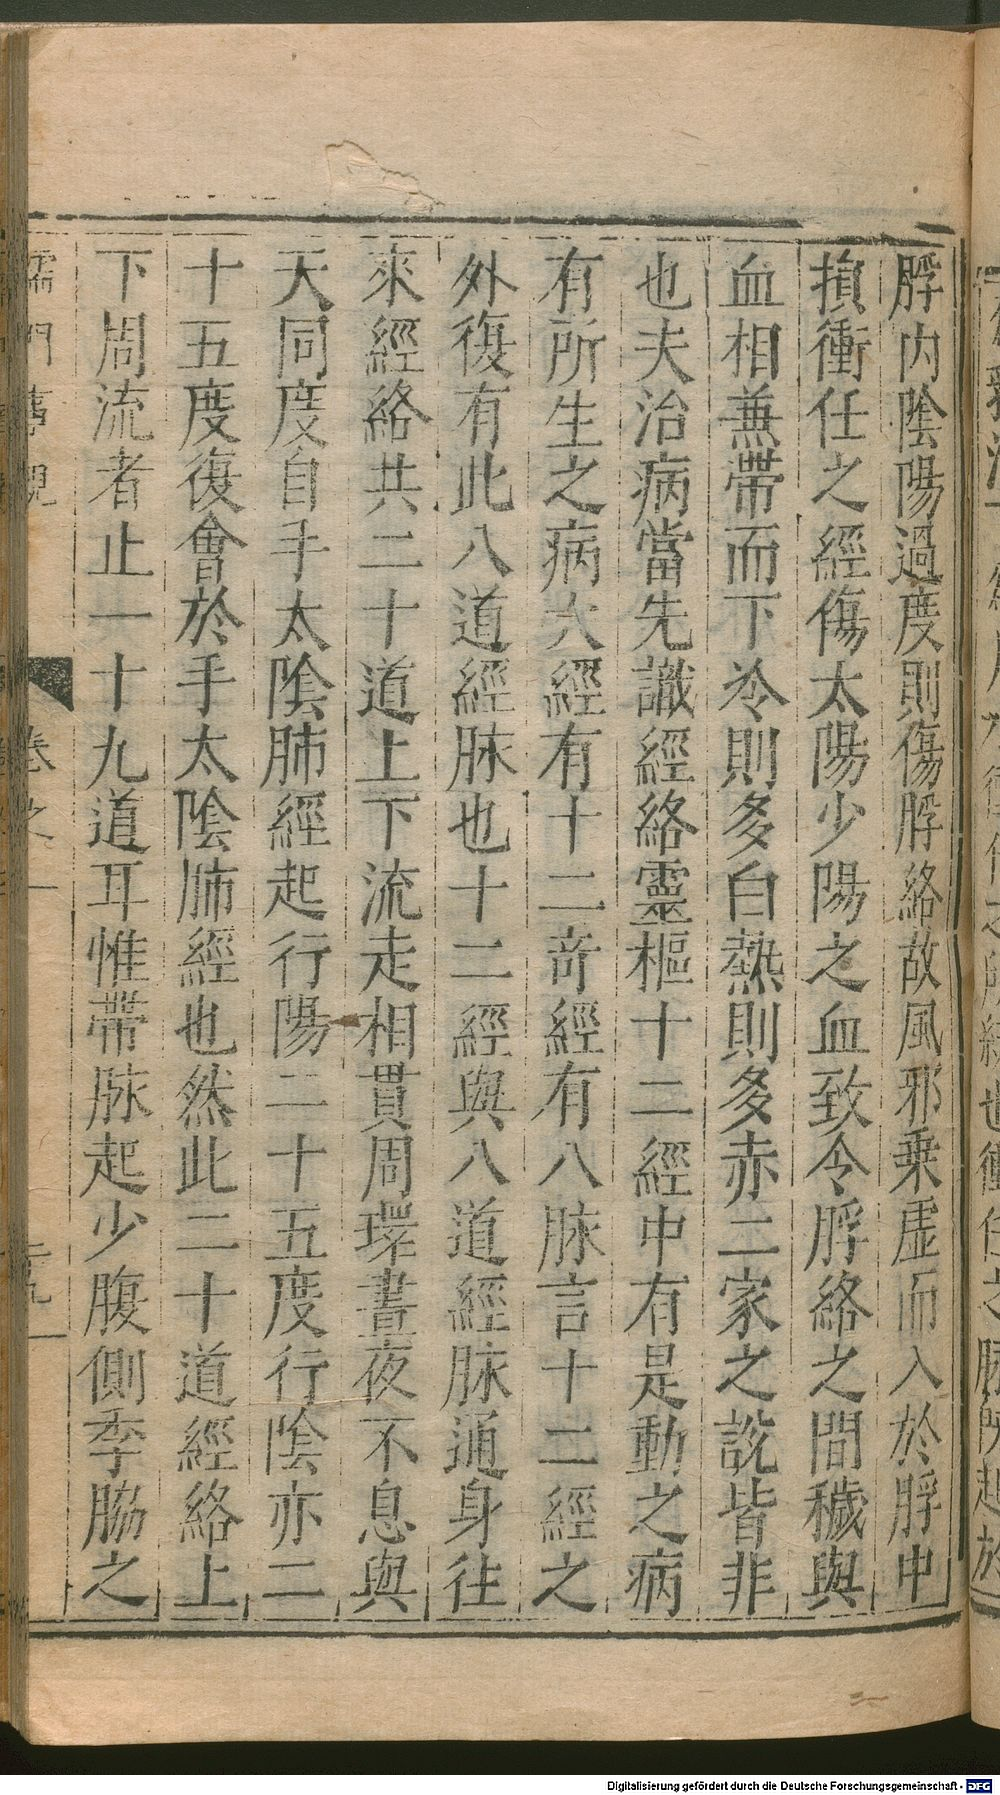 脬内陰陽過度則傷脬絡故風邪乗虛而入於脬中
損衝任之經傷太陽少陽之血致令脬絡之間穢與
血相兼帶而下冷則多白熱則多赤二家之説皆非
也夫治病當先識經絡靈樞十二經中有是動之病
有所生之病大經有十二竒經有八脉言十二經之
外復有此八道經脉也十二經與八道經脉通身往
來經絡共二十道上下流走相貫周環晝夜不息與
天同度自手太陰肺經起行陽二十五度行陰亦二
十五度復會於手太陰肺經也然此二十道經絡上
下周流者止一十九道耳惟帶脉起少腹側季脇之
儒門事親
卷之一
Digitalisierung gefördert durch die Deutsche Forschungsgemeinschaft - DFG